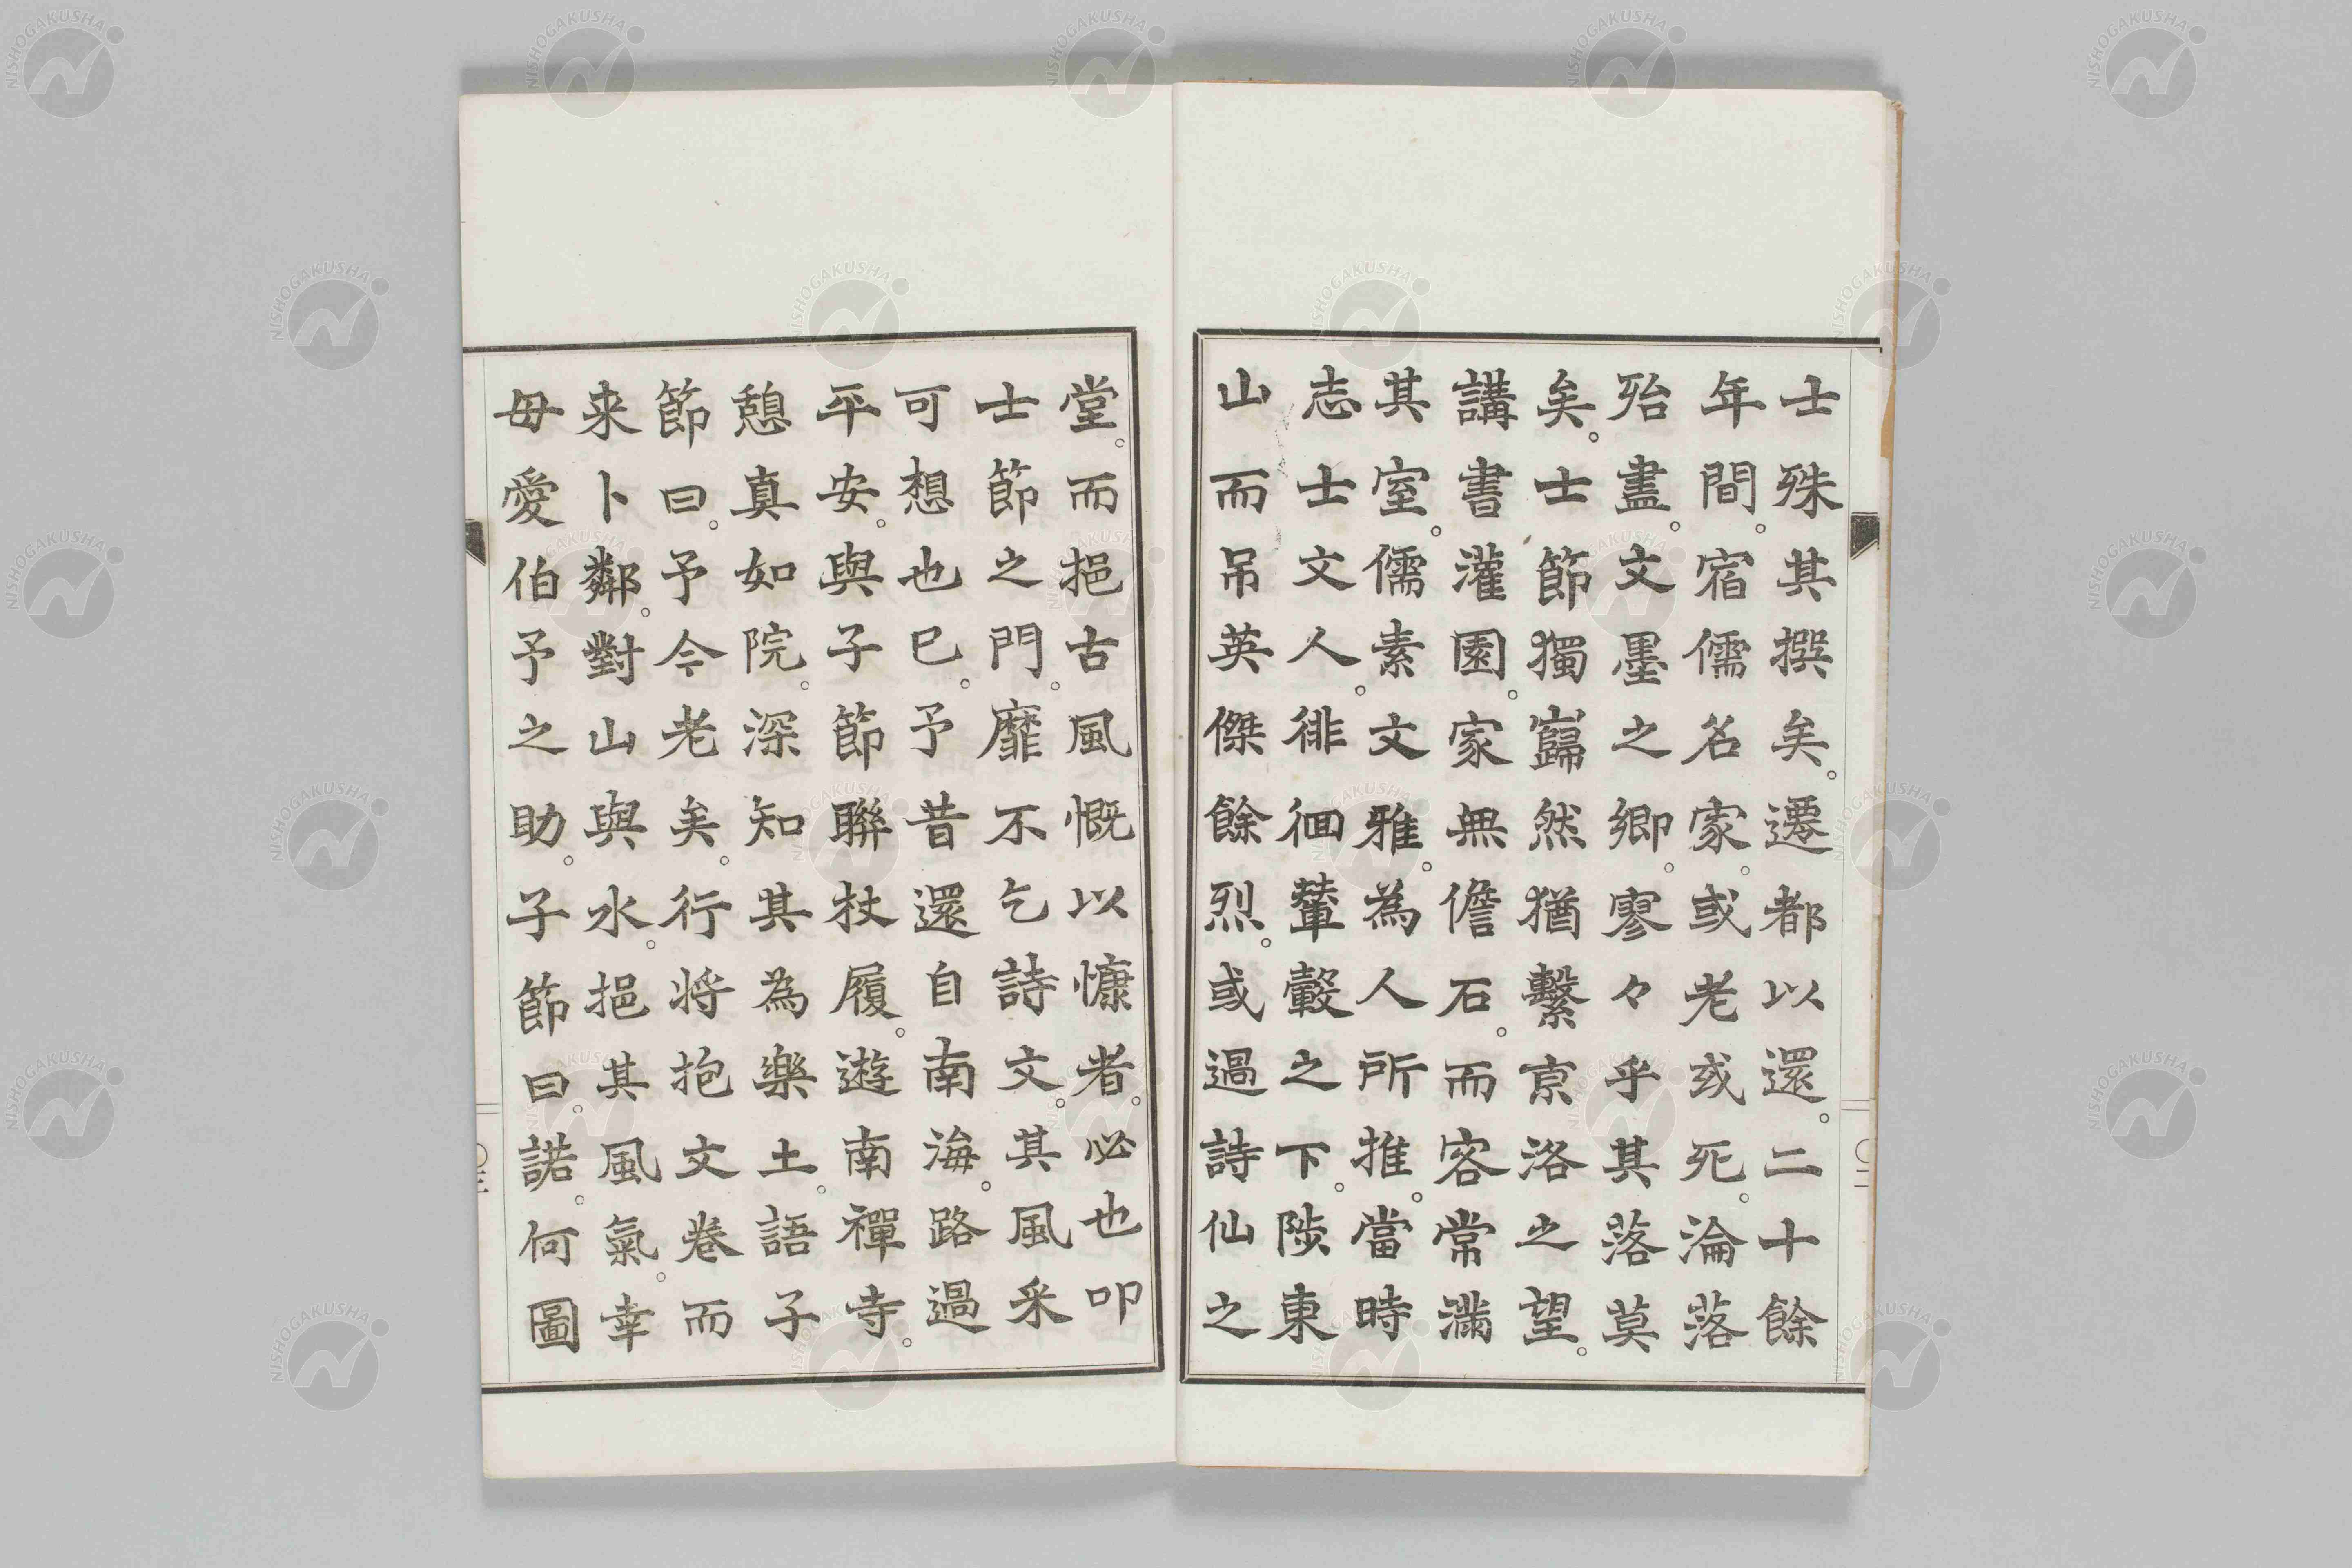 士殊其撰矣。遷都以還。二十餘
年間。宿儒名家。或老或死。淪落
殆盡。文墨之鄉。寥々乎其落莫
矣。士節獨巋然猶繫京洛之望。
講書灌園。家無儋石。而客常滿
其室。儒素文雅。為人所推。當時
志士文人。徘徊輦轂之下。陟東
山而吊英傑餘烈。或過詩仙之
堂。而挹古風慨以慷者。必也叩
士節之門。靡不乞詩文。其風采
可想也已。予昔還自南海。路過
平安。與子節聯杖履。遊南禪寺。
憩真如院。深知其為樂土。語子
節曰。予今老矣。行将抱文卷而
来卜鄰。對山與水。挹其風氣。幸
毋愛伯予之助。子節曰。諾。何圖
○二
○三
NISHOGAKUSHA